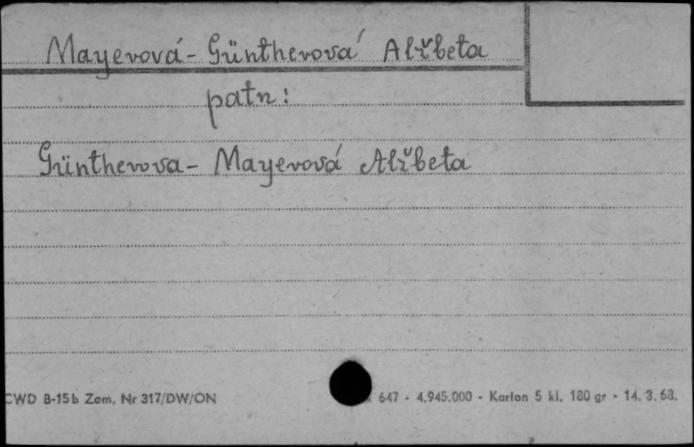 Mayerová - Güntherová Alžbeta
patrz:
Güntherova - Mayerová Alžbeta
CWD B-15b Zam. Nr 317/DW/ON
647 - 4.945.000 - Karton 5 kl. 180 gr - 14. 3. 68.